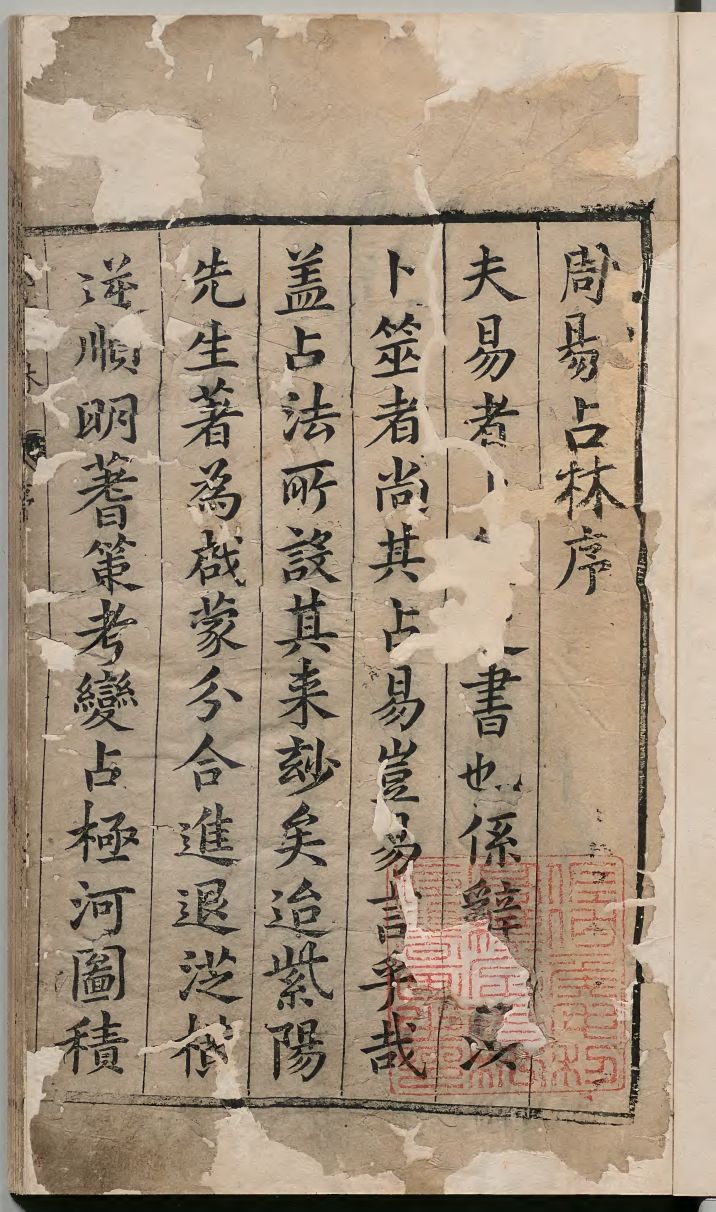 周易占林序
夫易者卜書也係辭以
卜筮者尚其占易豈易言乎哉
盖占法所設其来玅矣迨紫陽
先生著為啟蒙分合進退
逆順明蓍策考變占極河圖積